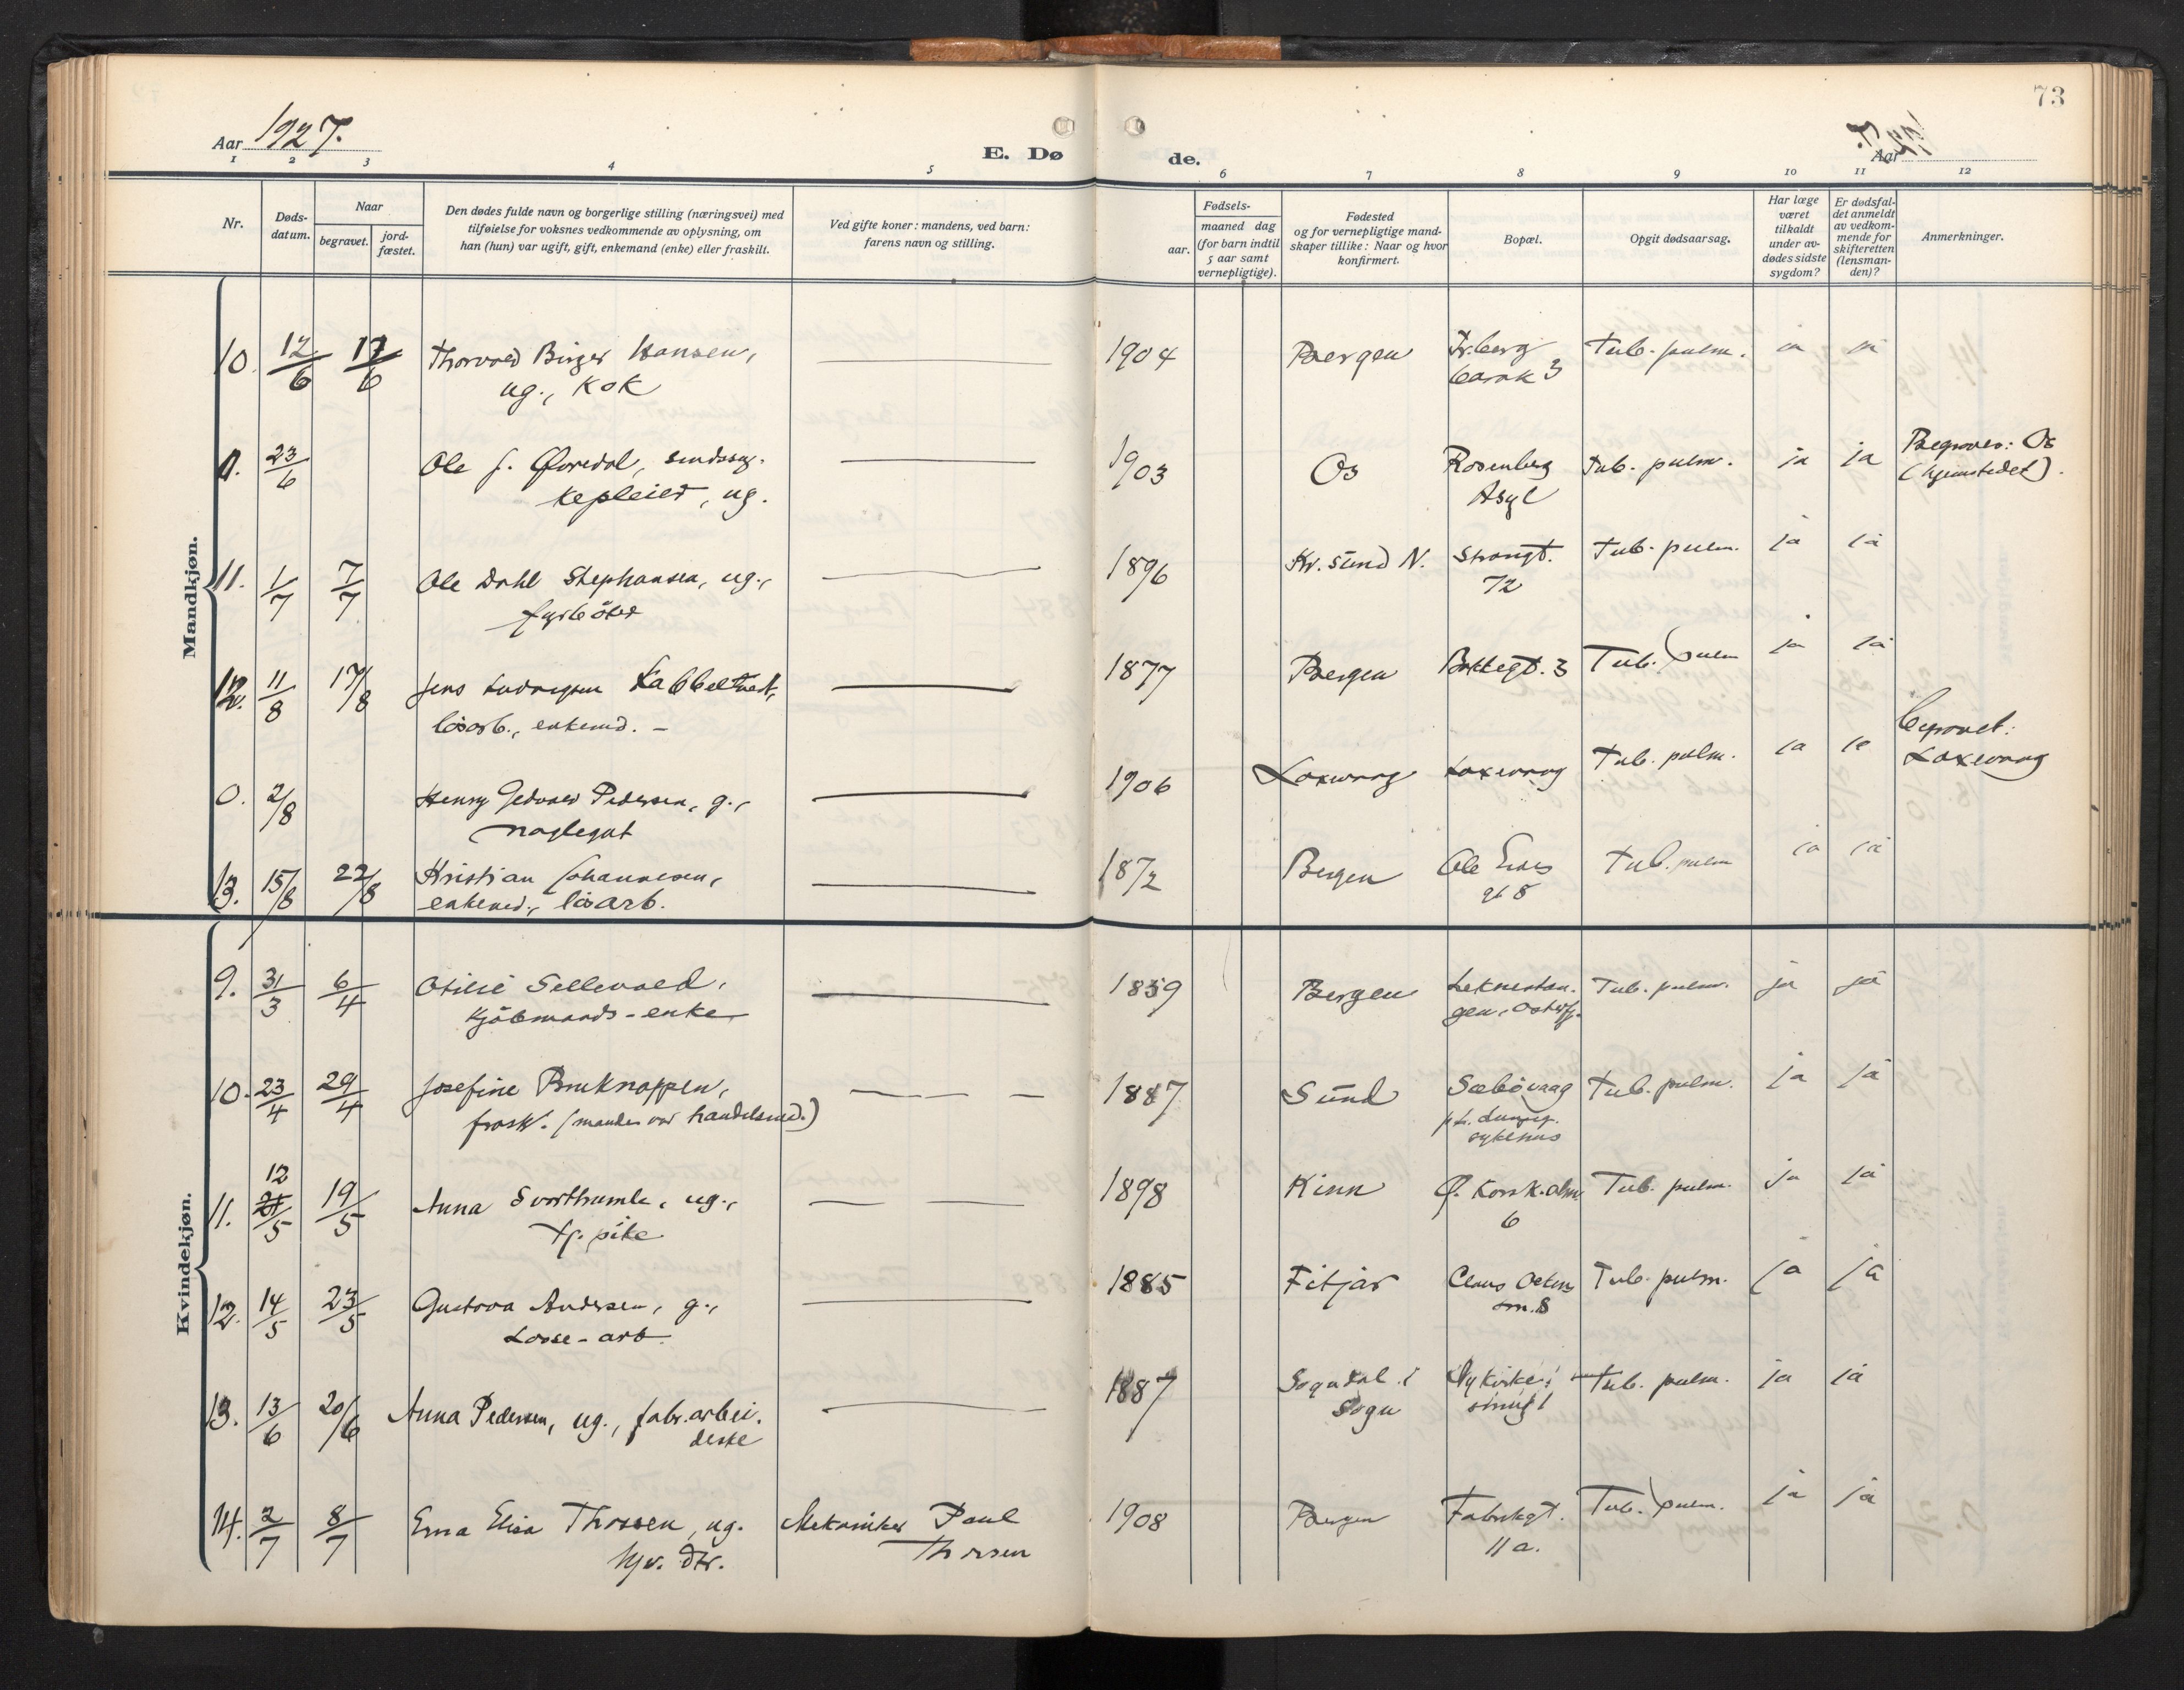 73
Aar 1927.
E. Døde.
Aar
1 2 3 4 5 6 7 8 9 10 11 12
Nr.
Døds-
datum.
Naar
begravet.
jord-
fæstet.
Den dødes fulde navn og borgerlige stilling (næringsvei) med
tilføielse for voksnes vedkommende av oplysning, om
han (hun) var ugift, gift, enkemand (enke) eller fraskilt.
Ved gifte koner: mandens, ved barn:
farens navn og stilling.
Fødsels-
aar.
maaned dag
(for barn indtil
5 aar samt
vernepligtige).
Fødested
og for vernepligtige mand-
skaper tillike: Naar og hvor
konfirmert.
Bopæl.
Opgit dødsaarsag.
Har læge
været
tilkaldt
under av-
dødes sidste
sygdom?
Er dødsfal-
det anmeldt
av vedkom-
mende for
skifteretten
(lensman-
den)?
Anmerkninger.
Mandkjøn.
10. 12/6 17/6 Thorvald Birger Hansen, 1904 Bergen Tub. pulm. ja ja
ug., kok barak 3
0. 23/6 Ole J. Øvredal, sindssy- 1903 Os Rosenberg Tub. pulm. ja ja Begraves: Os
kepleier, ug. Asyl (hjemstedet).
11. 1/7 7/7 Ole Dahl Stephansen, ug., 1896 Kr.sund N. Strangt. Tub. pulm. ja ja
fyrbøter 72
12. 11/8 17/8 Jens Ludvigsen Kabbeltvedt, 1877 Bergen 3 Tub. pulm ja ja
løsarb., enkemd. -
0. 2/8 Henry Pedersen, g., 1906 Loxevaag Loxevaag Tub. pulm. ja ja begravet:
naglegut Loxevaag
13. 15/8 22/8 Kristian Johannesen, 1872 Bergen Ole Tub. pulm ja ja
enkemd., løsarb. gt 8
Kvindekjøn.
9. 31/3 6/4 Otilie Sellevold, 1859 Bergen Leknestan- Tub. pulm. ja ja
kjøbmands-enke gen, Osterfj.
10. 23/4 29/4 Josefine Bruknappen, 1887 Sund Sæbövaag Tub. pulm. ja ja
frask. (manden var handelsmd.) p.t. Lungeg. sykehus
11. 12/5 19/5 Anna Svorthumle, ug., 1898 Kinn Ø. Korsk.alm. Tub. pulm. ja ja
tj. pike 6
12. 14/5 23/5 Gustava Andersen, g., 1885 Fitjar Claus Ocken Tub. pulm. ja ja
Losse-arb. sm. 8
13. 13/6 20/6 Anna Pedersen, ug., fabr.arbei- 1887 Sogndal i Nykirke- Tub. pulm. ja ja
derske Sogn smug 1
14. 2/7 8/7 Erna Elisa Thorsen, ug. Mekaniker Paul 1908 Bergen Fabrikgt. Tub. pulm. ja ja
hjv. dtr. Thorsen 11 a.